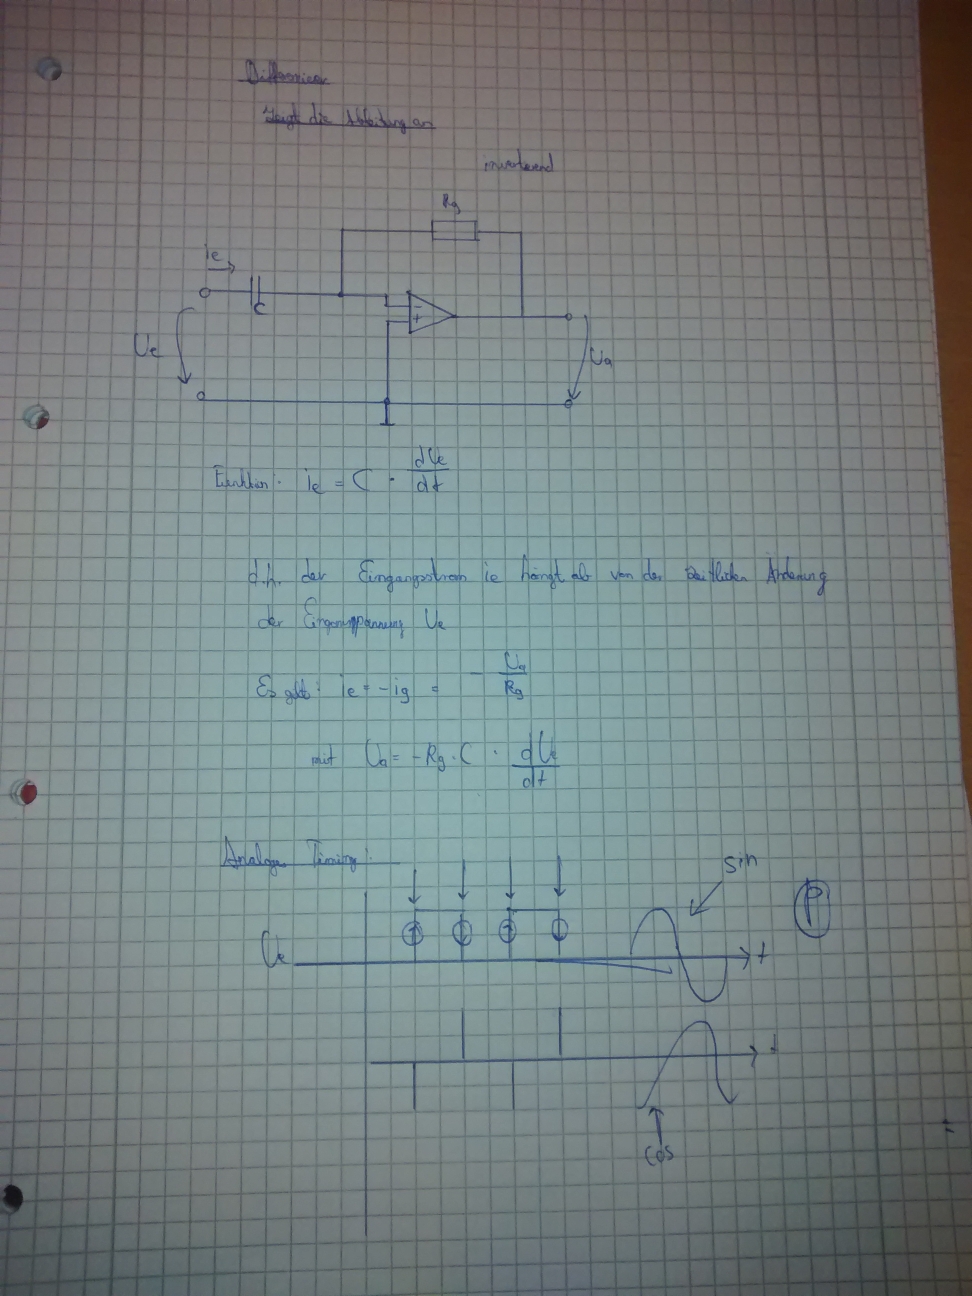 Differenzierer
Zeigt die Ableitung an
invertierend
Rg
ie
C
-
+
Ue
Ua
Funktion: ie = C · dUe/dt
d.h. der Eingangsstrom ie hängt ab von der zeitlichen Änderung
der Eingangsspannung Ue
Es gilt: ie = -ig = - Ua/Rg
mit Ua = -Rg · C · dUe/dt
Analoge Timing:
sin
P
Ue
t
t
cos